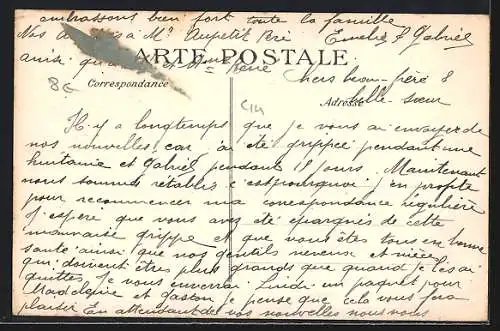 embrassons bien fort toute la famille
Nos à Mr Aupetit Emelie & Gabriel
ainsi
CARTE POSTALE
Correspondance
Adresse
8€
C14
Chers beau-frère &
belle-sœur
Il y a longtemps que je vous ai envoyer de
nos nouvelles, car j'ai été grippée pendant une
huitaine et Gabriel pendant 15 jours. Maintenant
nous sommes rétablis c'est pourquoi j'en profite
pour recommencer ma correspondance régulière
J'espère que vous avez été épargnés de cette
mauvaise grippe et que vous êtes tous en bonne
santé ainsi que nos gentils neveux et nièce
qui doivent êtres plus grands que quand je les ai
quittés je vous enverrai Lundi un paquet pour
Madeleine et Gaston je pense que cela vous fera
plaisir En attendant de vos nouvelles nous vous